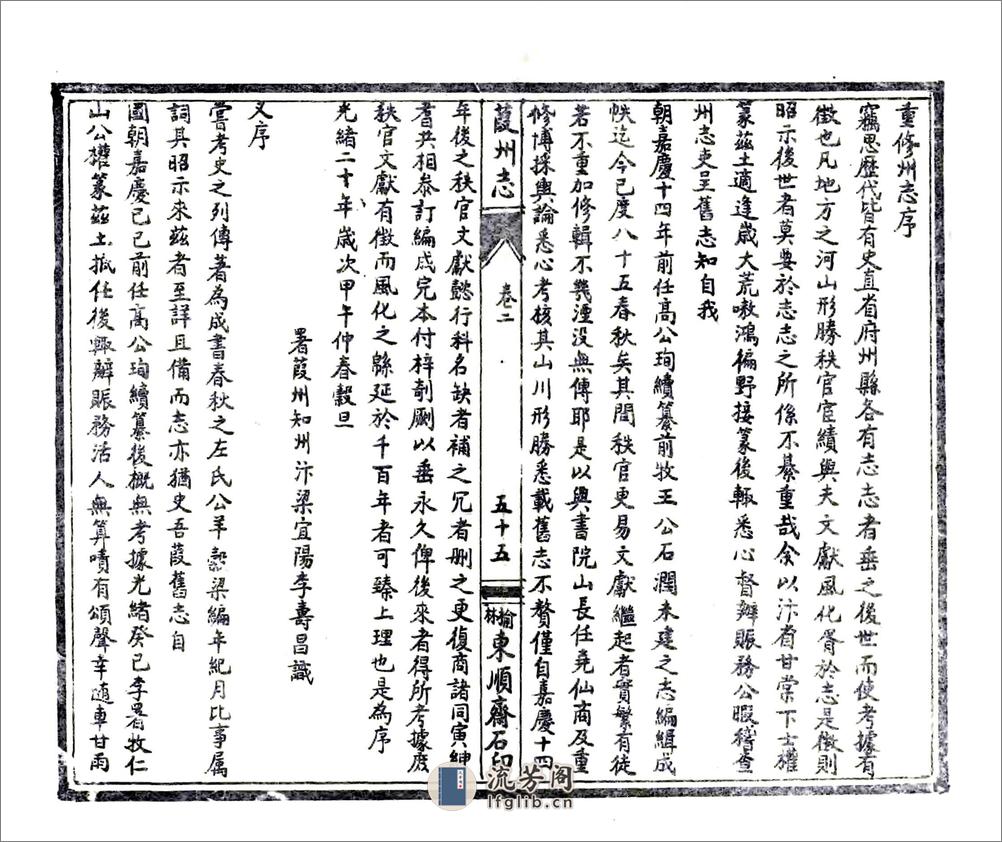 重修州志序
竊思歷代皆有史直省府州縣各有志志者垂之後世而使考據有
徵也凡地方之河山形勝秩官宦績與夫文獻風化胥於志是徵則
昭示後世者莫要於志志之所係不綦重哉余以汴省甘棠下士權
篆茲土適逢歲大荒嗷鴻徧野接篆後輒悉心督辦賑務公暇稽查
州志吏呈舊志知自我
朝嘉慶十四年前任高公珣續纂前牧王公石潤未建之志編緝成
帙迄今已度八十五春秋矣其間秩官更易文獻繼起者實繁有徒
若不重加修輯不幾湮没無傳耶是以與書院山長任堯仙商及重
修博採輿論悉心考核其山川形勝悉載舊志不贅僅自嘉慶十四
葭州志
卷二
五十五
榆林東順齋石印
年後之秩官文獻懿行科名缺者補之冗者删之更復商諸同寅紳
耆共相叅訂編成完本付梓剞劂以垂永久俾後來者得所考據庶
秩官文獻有徵而風化之緜延於千百年者可臻上理也是為序
光緒二十年歲次甲午仲春穀旦
署葭州知州汴梁宜陽李壽昌識
又序
嘗考史之列傳著為成書春秋之左氏公羊穀梁編年紀月比事属
詞其昭示來茲者至詳且備而志亦猶史吾葭舊志自
國朝嘉慶己巳前任高公珣續纂後概無考據光緒癸巳李署牧仁
山公權篆茲土抵任後興辦賑務活人無算嘖有頌聲幸随車甘雨
流芳阁
lfglib.cn